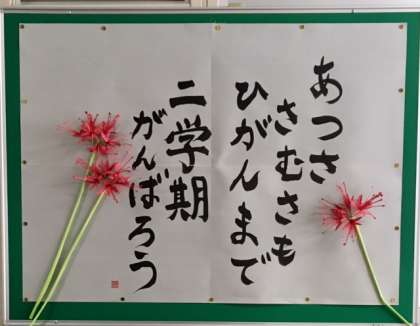 あつさ
さむさも
ひがんまで
二学期
がんばろう